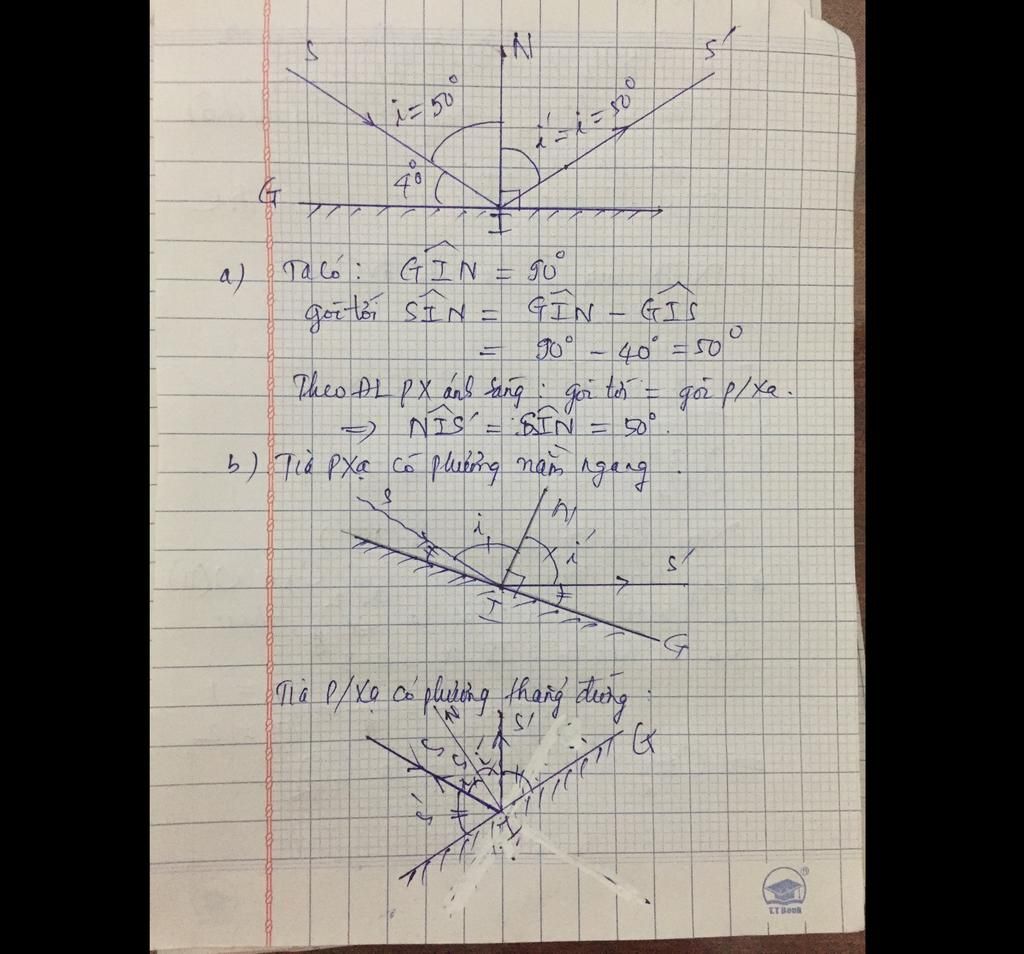 S N S'
i = 50° i' = i = 50°
40°
G
I
a) Ta có : GIN = 90°
góc tới SIN = GIN - GIS
= 90° - 40° = 50°
Theo ĐL PX ánh sáng : góc tới = góc p/xạ.
=> NIS' = SIN = 50°.
b) Tia pxạ có phương nằm ngang .
S N
i i' S'
I
G
Tia P/Xạ có phương thẳng đứng :
N S' G
S i i'
I
T.T Book